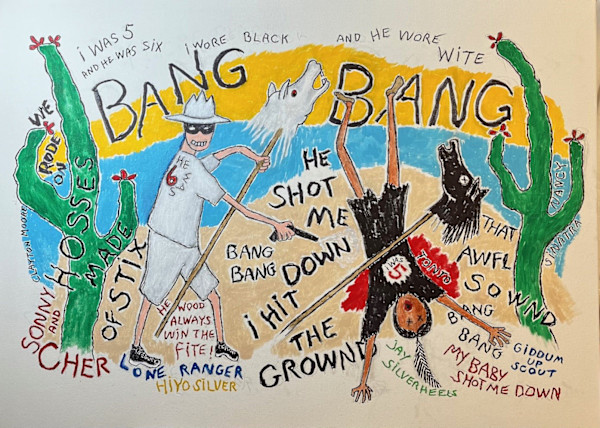 i WAS 5
AND HE WAS SIX
i WORE BLACK
AND HE WORE
WiTE
BANG BANG
WE
RODE
ON
HOSSES
MADE
OF STiX
HE
WAS
6
HE
SHOT
ME
DOWN
BANG
BANG
i HiT
THE
GROWND
i WAS
5
TONTO
THAT
AWFL
SOWND
BANG
BANG
MY BABY
SHOT ME DOWN
HE WOOD
ALWAYS
WiN THE
FiTE!
CLAYTON MOORE
SONNY
AND
CHER
LONE RANGER
HiYO SiLVER
JAY
SiLVERHEELS
GiDDUM
UP
SCOUT
NANCY
SYNOTTRA